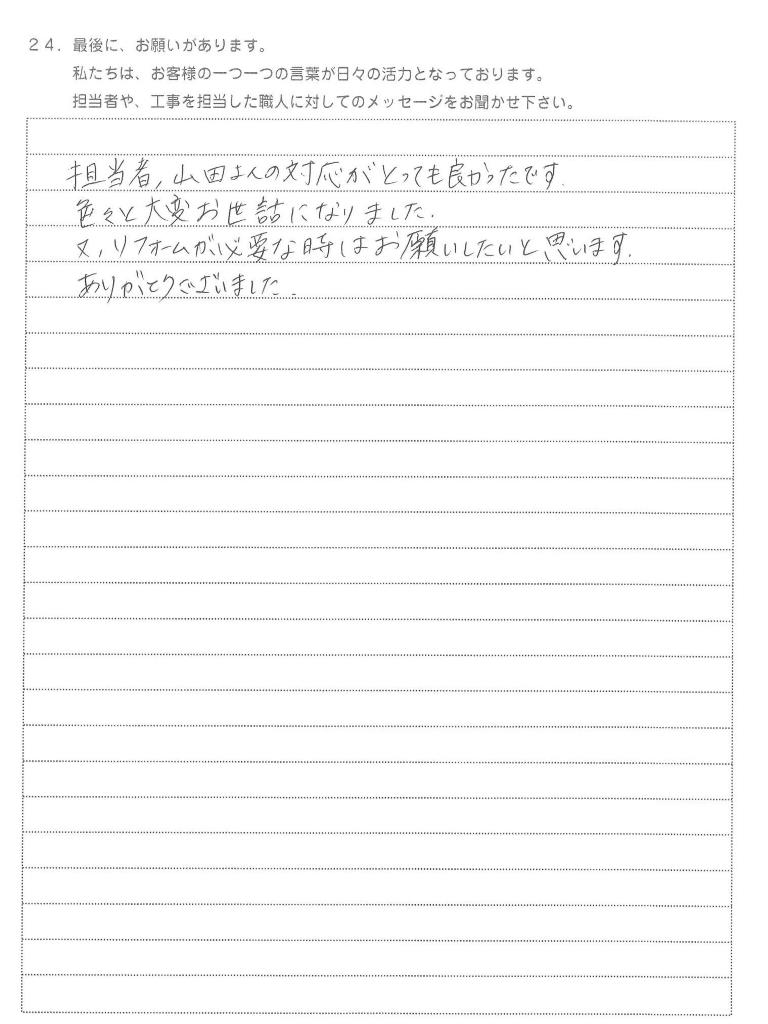 24. 最後に、お願いがあります。
私たちは、お客様の一つ一つの言葉が日々の活力となっております。
担当者や、工事を担当した職人に対してのメッセージをお聞かせ下さい。
担当者,山田さんの対応がとっても良かったです.
色々と大変お世話になりました.
又,リフォームが必要な時はお願いしたいと思います.
ありがとうございました.